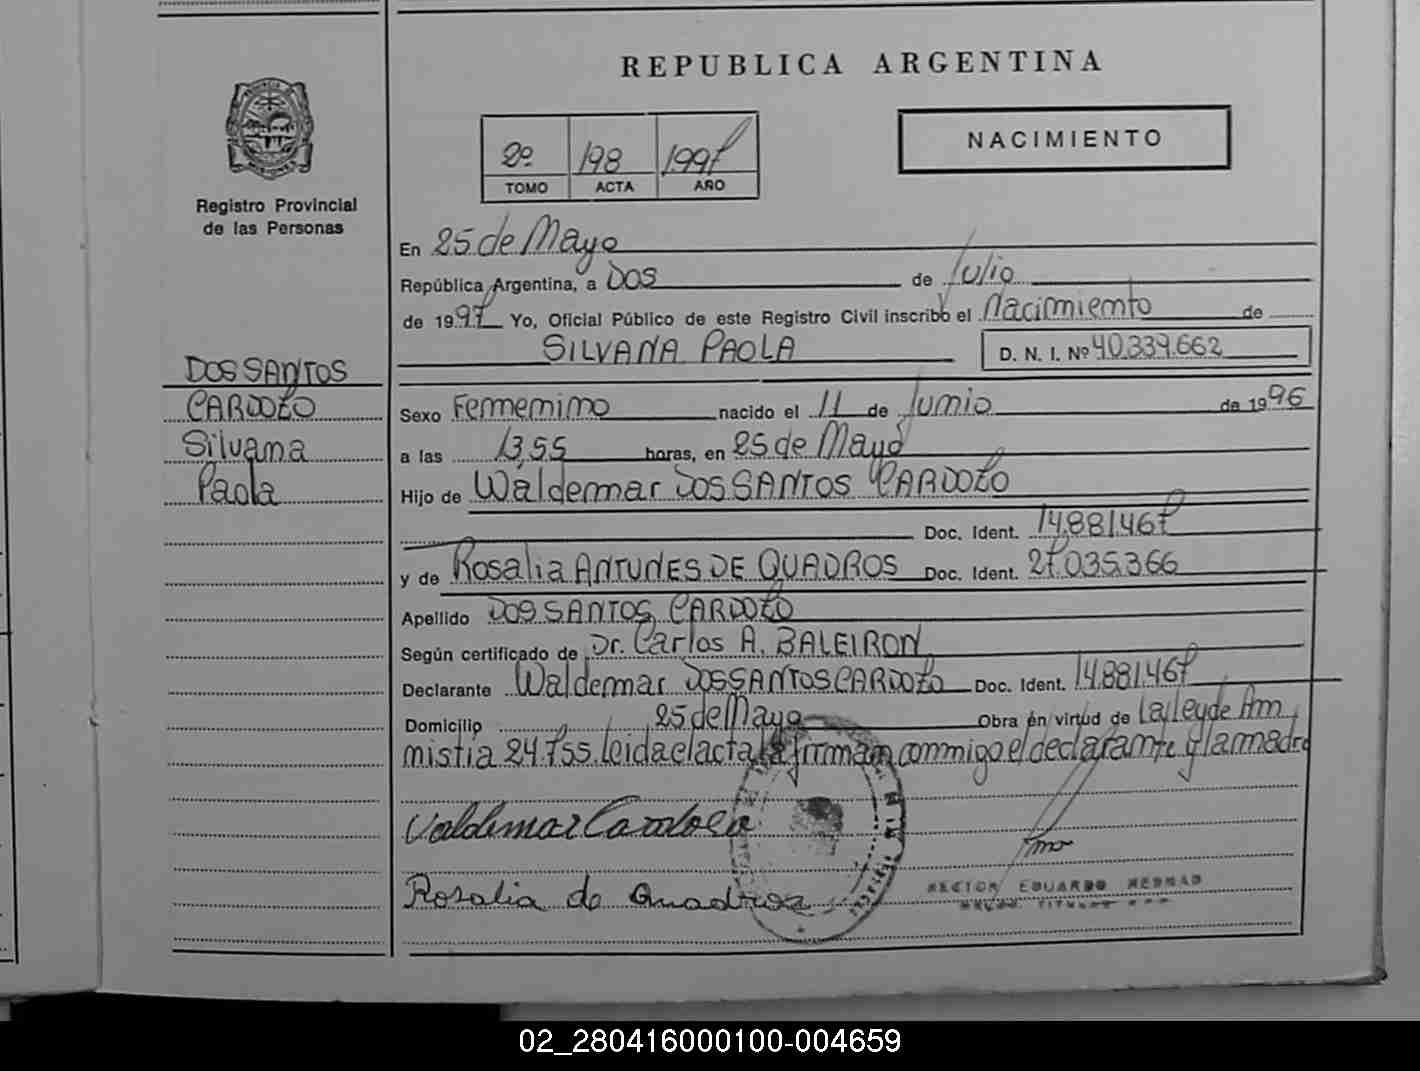 REPUBLICA ARGENTINA
NACIMIENTO
2º 198 1997
TOMO ACTA AÑO
Registro Provincial
de las Personas
DOS SANTOS
CARDOZO
Silvana
Paola
En 25 de Mayo
República Argentina, a DOS de Julio
de 1997 Yo, Oficial Público de este Registro Civil inscribo el Nacimiento de
SILVANA PAOLA D. N. I. Nº 40.339.662
Sexo Femenino nacido el 11 de Junio de 1996
a las 13,55 horas, en 25 de Mayo
Hijo de Waldemar DOS SANTOS CARDOZO
Doc. Ident. 14.881.467
y de Rosalia ANTUNES DE QUADROS Doc. Ident. 27.035.366
Apellido DOS SANTOS CARDOZO
Según certificado de Dr. Carlos A. BALEIRON
Declarante Waldemar DOS SANTOS CARDOZO Doc. Ident. 14.881.467
Domicilio 25 de Mayo Obra en virtud de la ley de Am
mistia 24.755. Leida el acta la firman conmigo el declarante y la madre
Valdemar Cardoso
Rosalia de Quadros
HECTOR EDUARDO
02_280416000100-004659